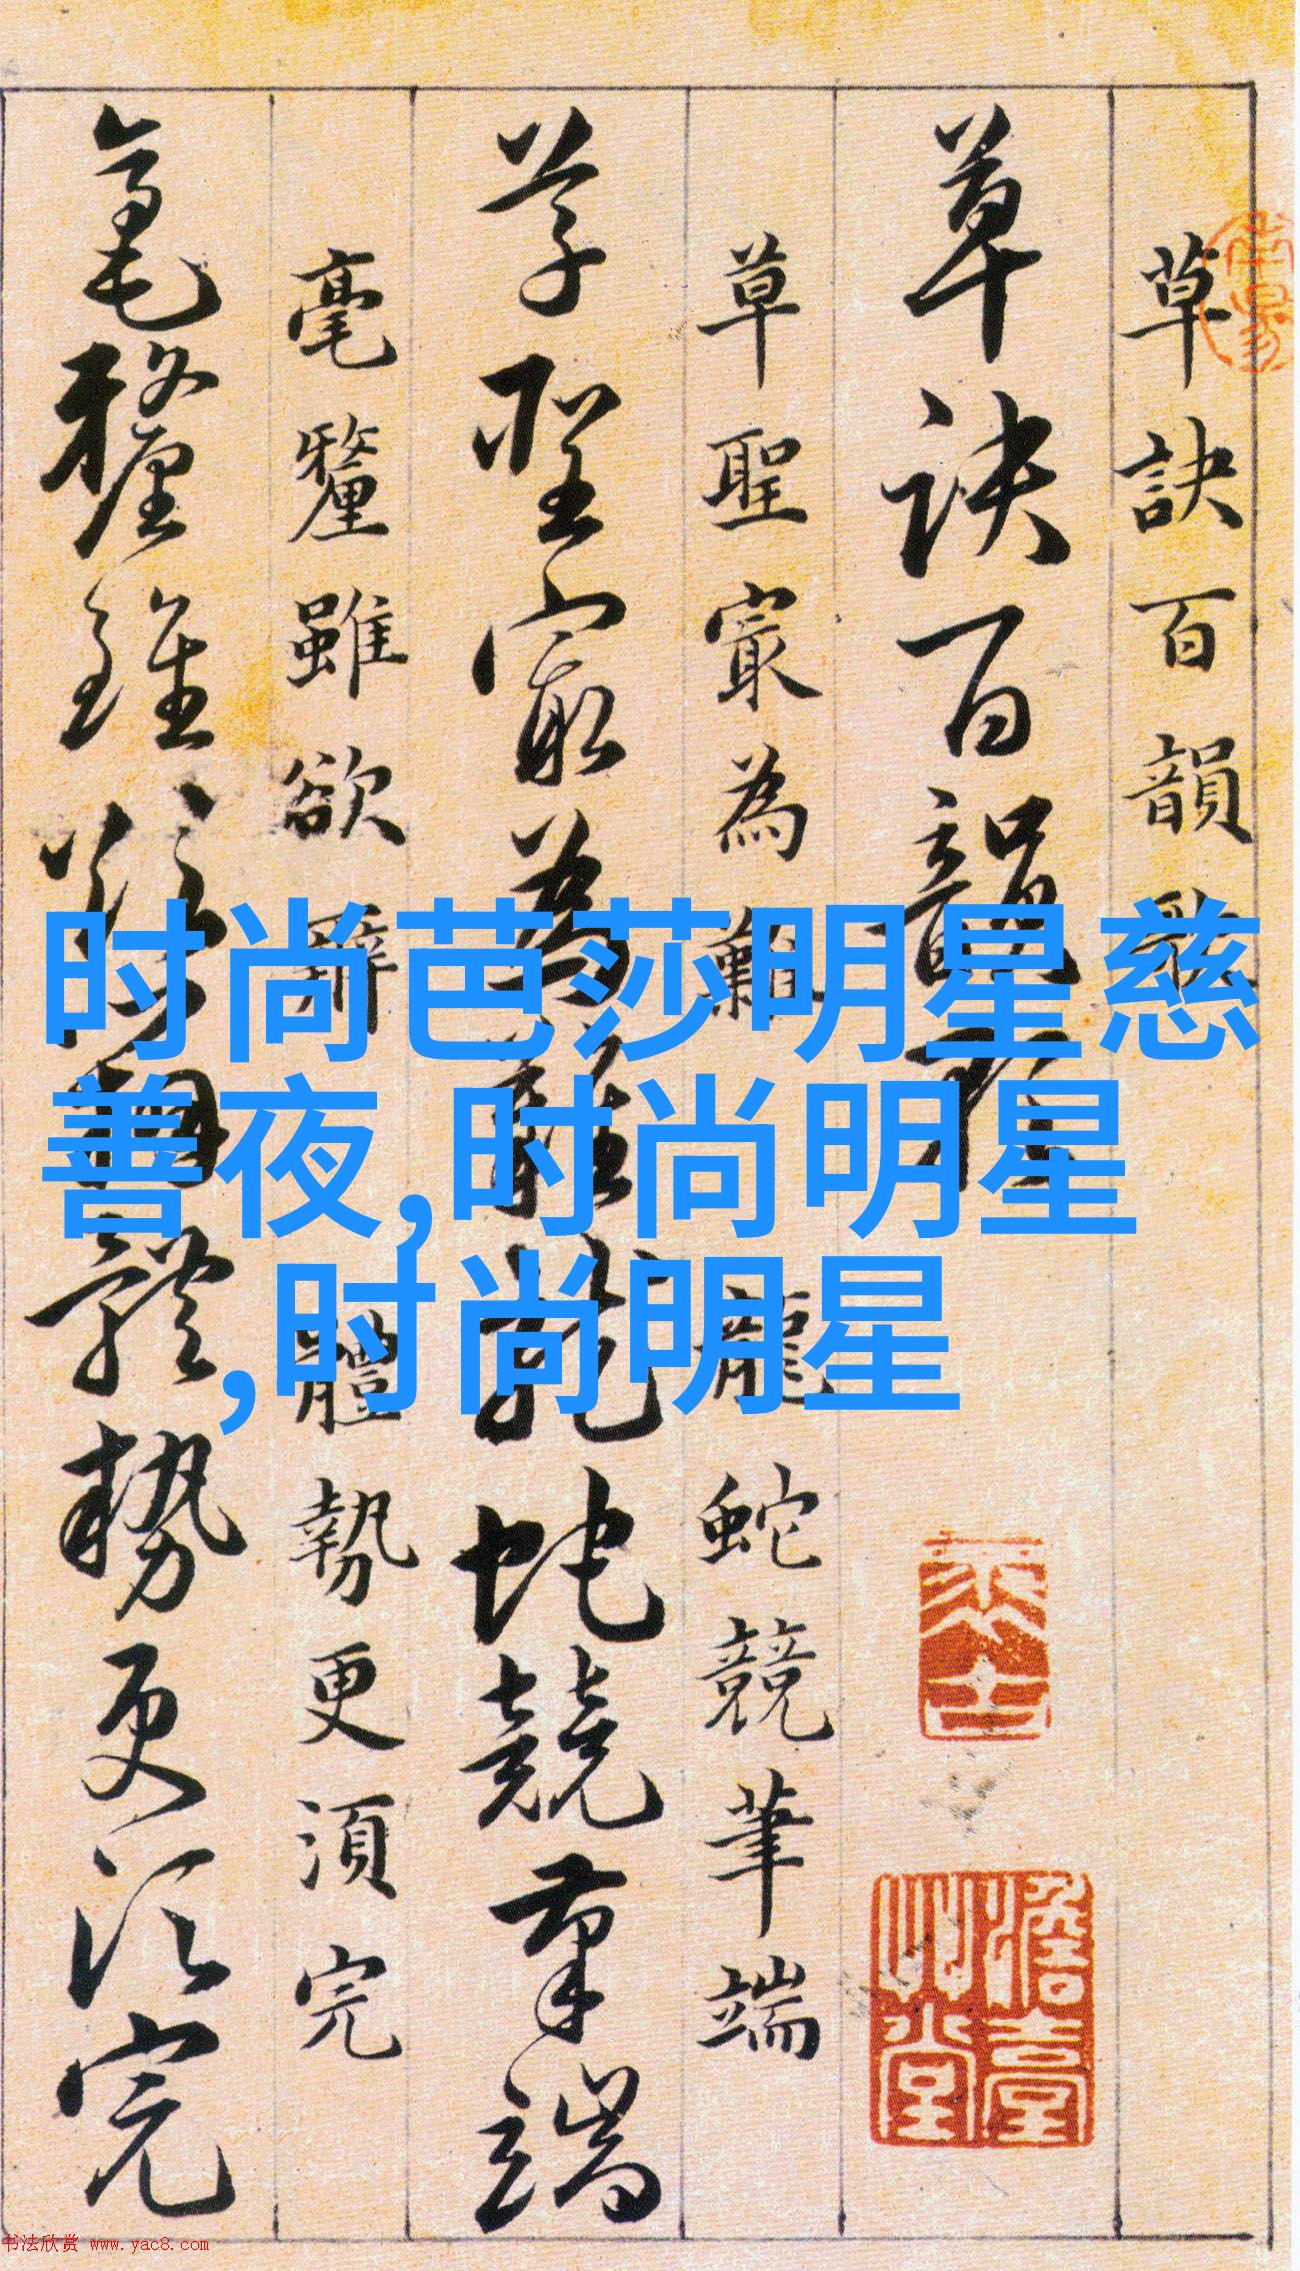 草訣百韻歌
草訣百韻歌
草聖寂為難 龍蛇競筆端
草聖寂為難龍蛇競筆端
毫釐雖欲辭 體勢更須完
毫釐雖欲辨體勢更須完
时尚芭莎明星慈
善夜,时尚明星
,时尚明星
书法欣赏 www.yac8.com